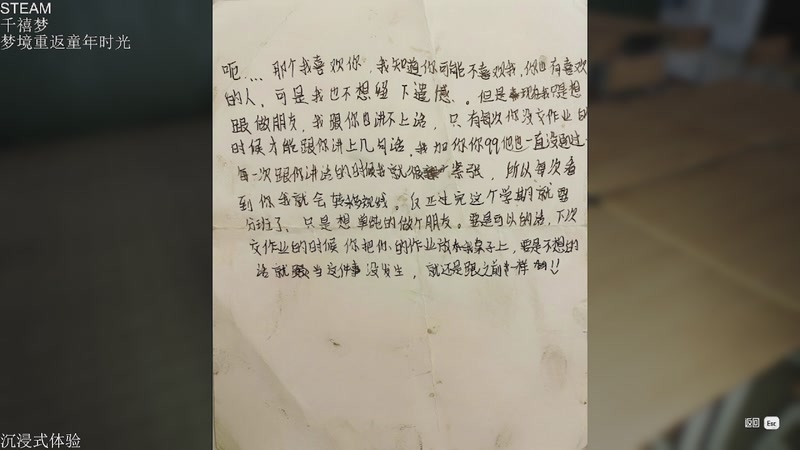 STEAM
千禧梦
梦境重返童年时光
呃... 那个我喜欢你，我知道你可能不喜欢我，你也有喜欢
的人，可是我也不想留下遗憾。但是现在我只是想
跟做朋友，我跟你也讲不上话，只有每次你没交作业的
时候才能跟你讲上几句话，我加你你99他也一直没通过
每一次跟你讲话的时候我就很紧张，所以每次看
到你我就会转移视线。反正过完这个学期就要
分班了，只是想单纯的做个朋友。要是可以的话，下次
交作业的时候你把你的作业放在我桌子上，要是不想的
话就当这件事没发生，就还是跟之前一样!!
沉浸式体验
返回 Esc